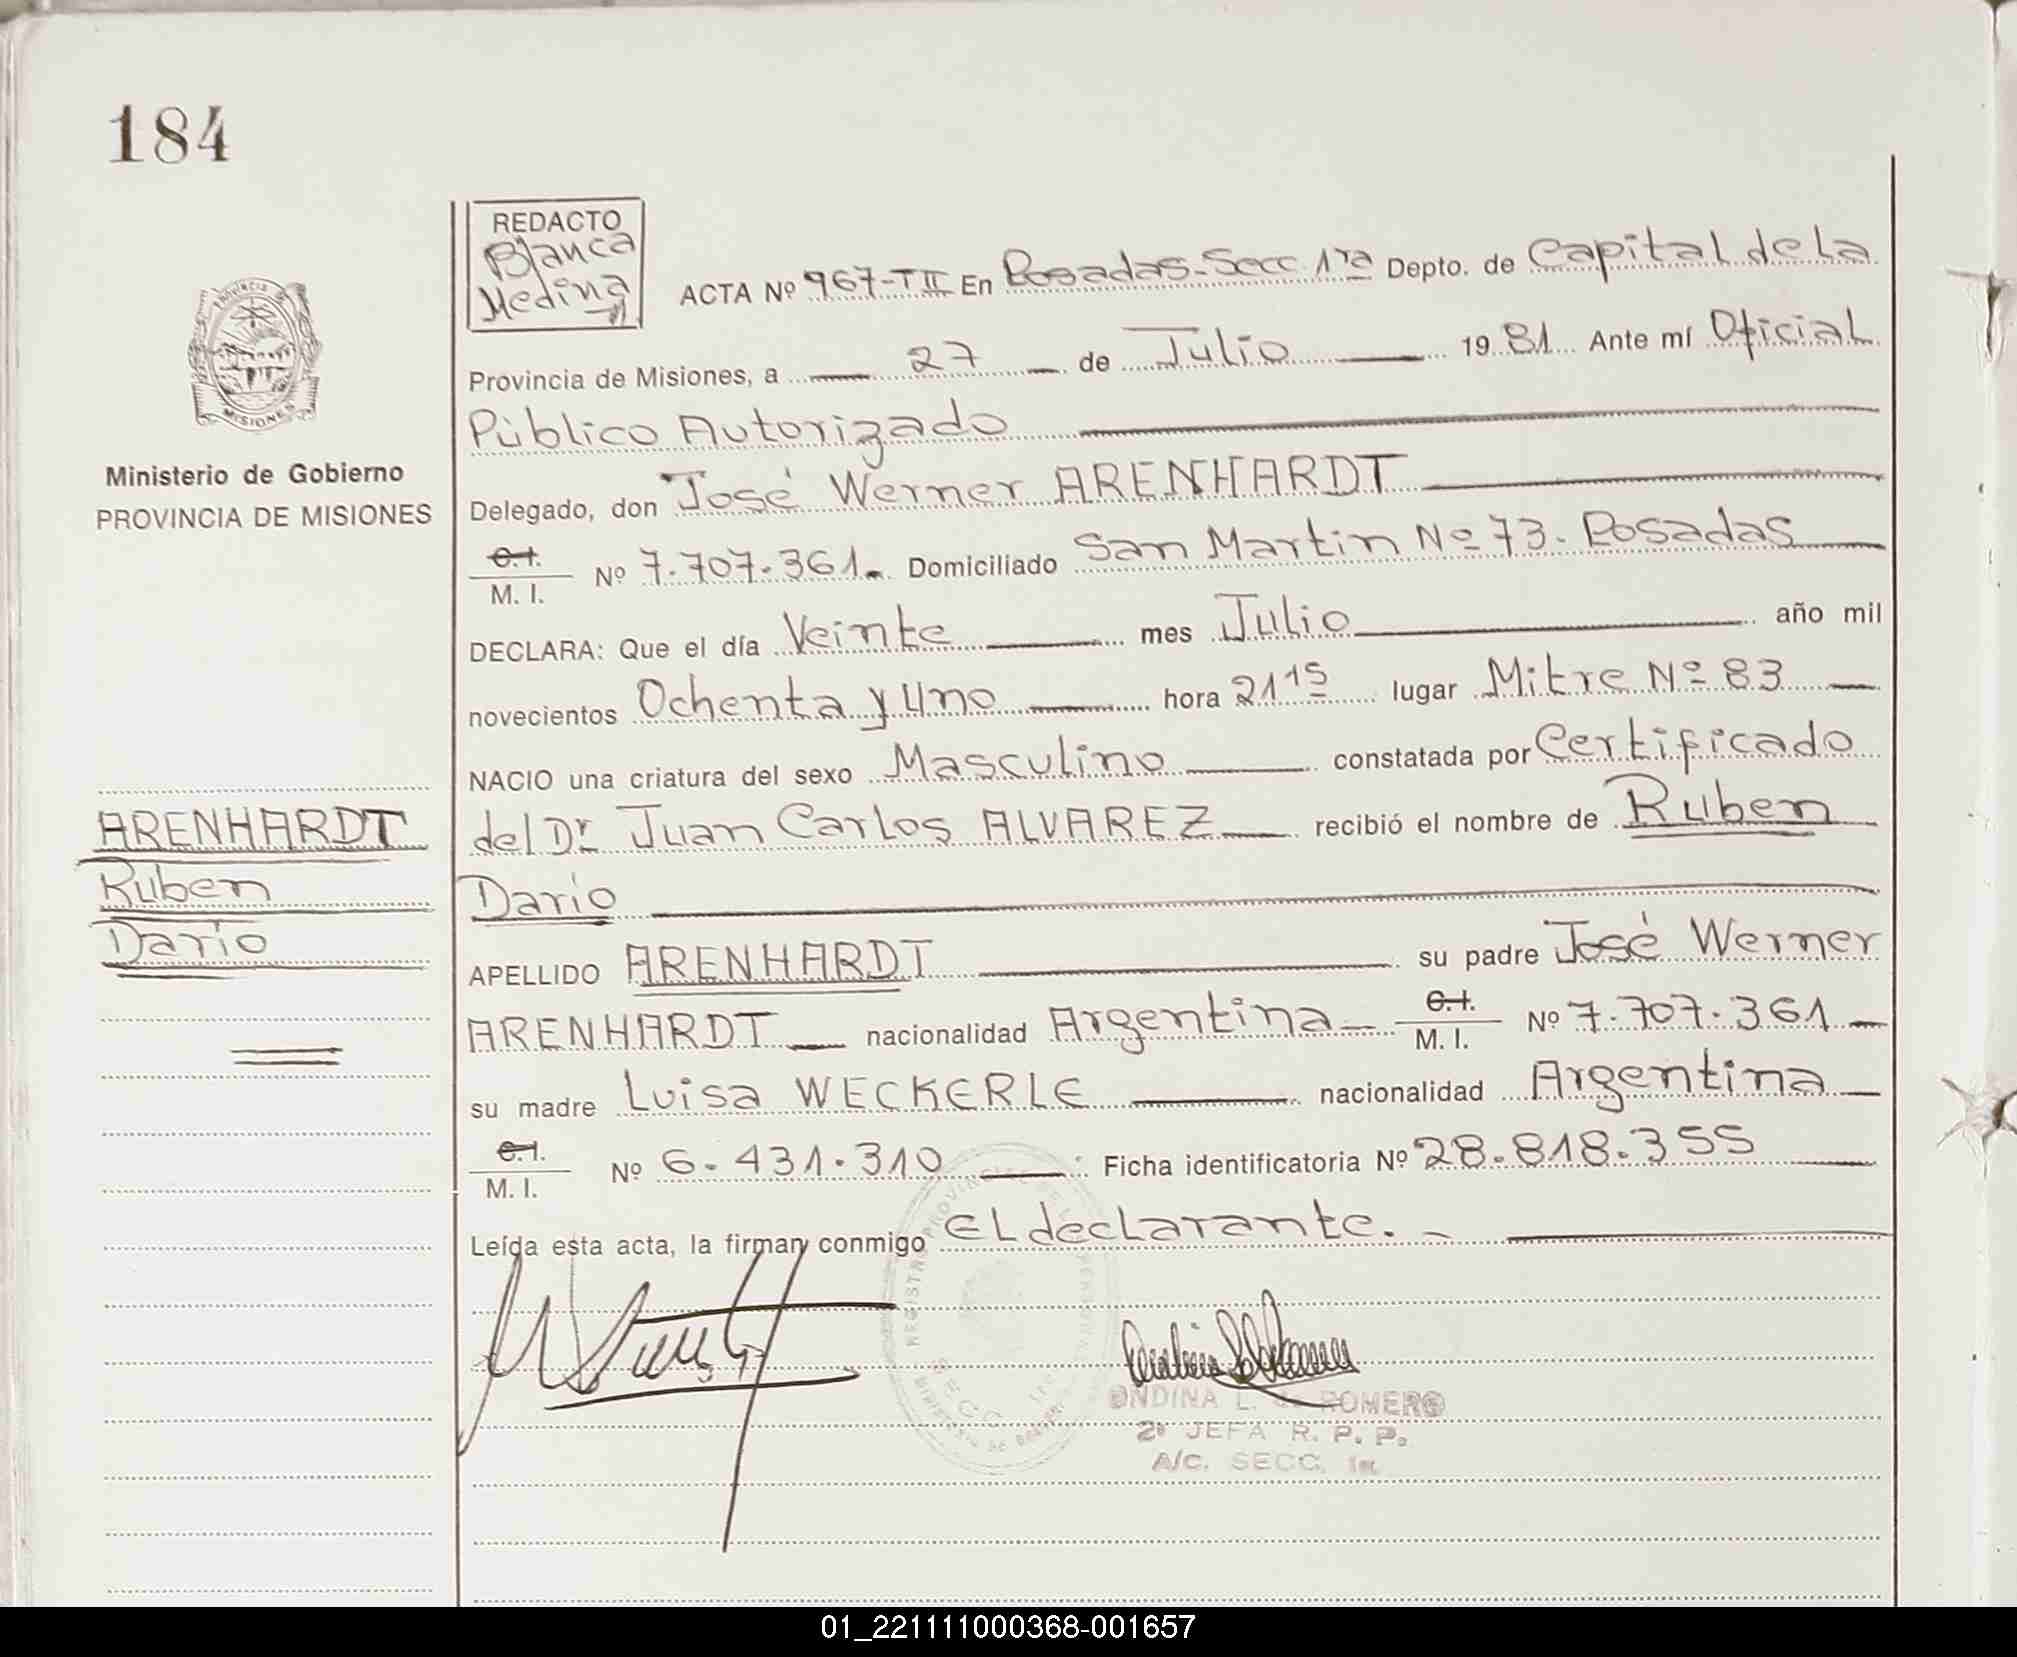 184
REDACTO
Blanca
Medina
ACTA Nº 967-T II En Posadas-Secc. 1ra Depto. de Capital de la
Provincia de Misiones, a 27 de Julio 1981 Ante mí Oficial
Público Autorizado
Delegado, don José Werner ARENHARDT
C.I.
M. I. Nº 7.707.361. Domiciliado San Martin Nº 73. Posadas
DECLARA: Que el día Veinte mes Julio año mil
novecientos Ochenta y Uno hora 21 15 lugar Mitre Nº 83
NACIO una criatura del sexo Masculino constatada por Certificado
del Dr Juan Carlos ALVAREZ recibió el nombre de Ruben
Dario
APELLIDO ARENHARDT su padre José Werner
ARENHARDT nacionalidad Argentina C.I. M. I. Nº 7.707.361
su madre Luisa WECKERLE nacionalidad Argentina
C.I.
M. I. Nº 6.431.310 Ficha identificatoria Nº 28.818.355
Leída esta acta, la firman conmigo El declarante.-
ONDINA L. de ROMERO
2º JEFA R. P. P.
A/C. SECC. 1ra
PROVINCIA
MISIONES
Ministerio de Gobierno
PROVINCIA DE MISIONES
ARENHARDT
Ruben
Dario
01_221111000368-001657